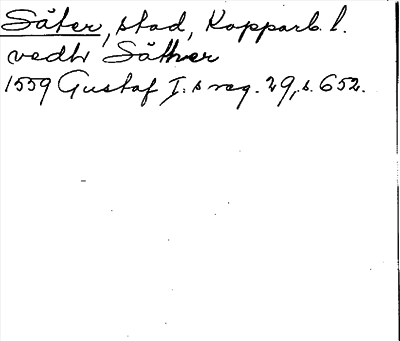 Säter, stad, Kopparb. l.
vedh Säthver
1559 Gustaf I:s reg. 29, s. 652.